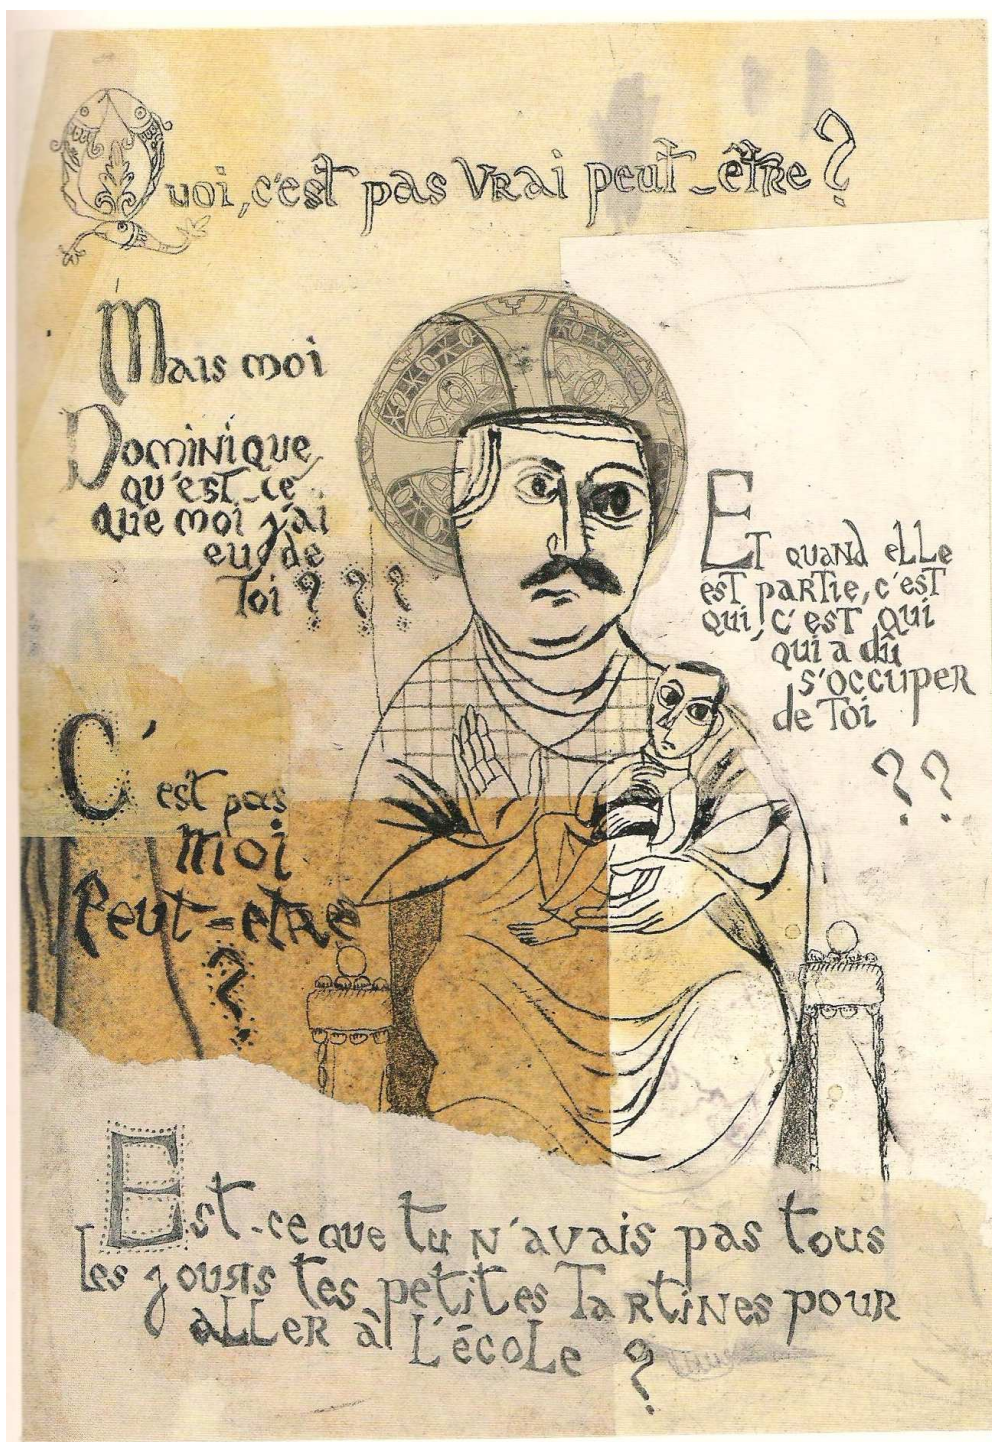 Quoi, c'est pas vrai peut-être ?
Mais moi
Dominique
qu'est-ce
que moi j'ai
eu de
Toi ? ? ?
Et quand elle
est partie, c'est
qui, c'est qui
qui a dû
s'occuper
de Toi
? ?
C'est pas
moi
Peut-etre
?
Est-ce que tu n'avais pas tous
les jours tes petites Tartines pour
aller à l'école ?